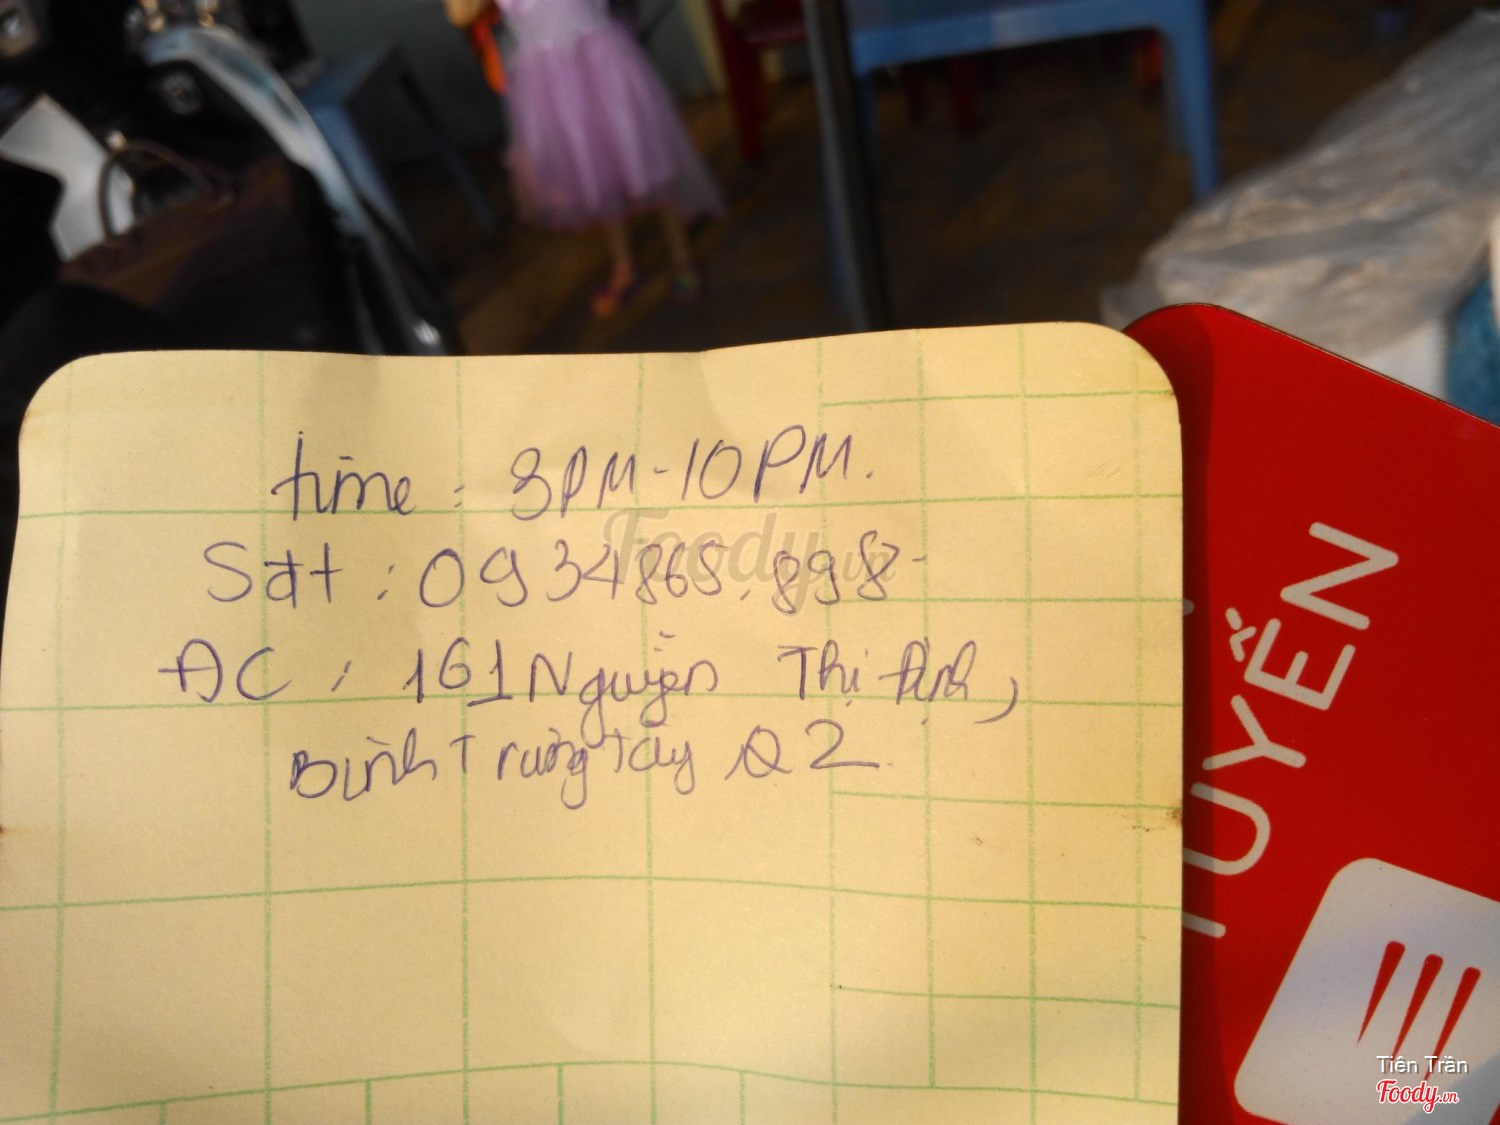 time : 3PM-10PM.
Sđt : 0934865.898
ĐC : 161 Nguyễn Thị Định,
Bình Trưng Tây Q2.
Foody.vn
TUYẾN
Tiên Trần
Foody.vn